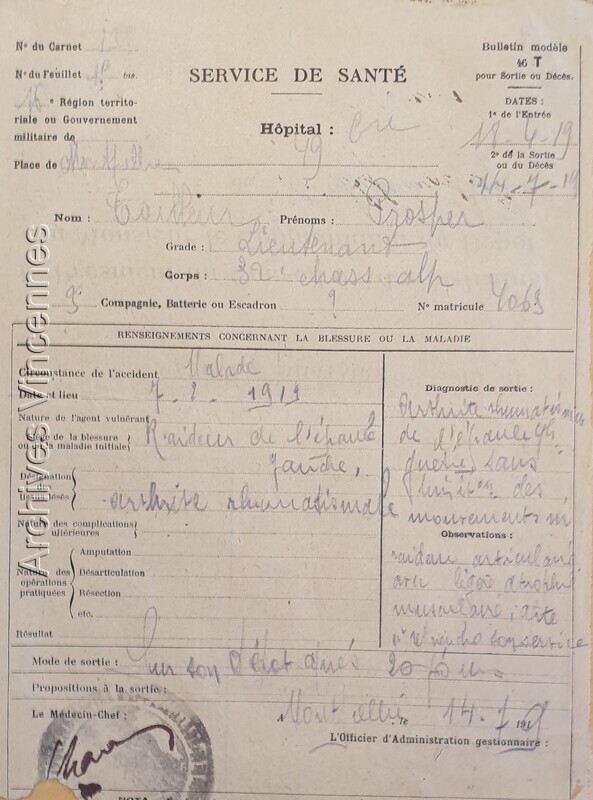 N° du Carnet
Bulletin modèle
46 T
pour Sortie ou Décès.
N° du Feuillet
SERVICE DE SANTÉ
DATES :
1° de l'Entrée
18-4-19
16 e Région territo-
riale ou Gouvernement
militaire de
Hôpital :
49
Place de Montpellier
2° de la Sortie
ou du Décès
14-7-19
Nom : Tailleur Prénoms : Prosper
Grade : Lieutenant
Corps : 32e chass alp
9 Compagnie, Batterie ou Escadron 9 N° matricule 4063
RENSEIGNEMENTS CONCERNANT LA BLESSURE OU LA MALADIE
Circonstance de l'accident Malade
Date et lieu 7-2-1919
Nature de l'agent vulnérant
Siège de la blessure
ou de la maladie initiale
Raideur de l'épaule
gauche,
Désignation
des
tissus lésés
arthrite rhumatismale
Nature des complications
ultérieures
Nature des
opérations
pratiquées
Amputation
Désarticulation
Résection
etc.
Résultat
Diagnostic de sortie :
arthrite rhumatismale
de l'épaule
des
mouvements
Observations :
raideur articulaire
avec légère atrophie
musculaire,
Mode de sortie : sur son Dépôt
20
Propositions à la sortie :
Le Médecin-Chef :
A Montpellier, le 14-7 1919
L'Officier d'Administration gestionnaire :
NOTA
Archives Vincennes